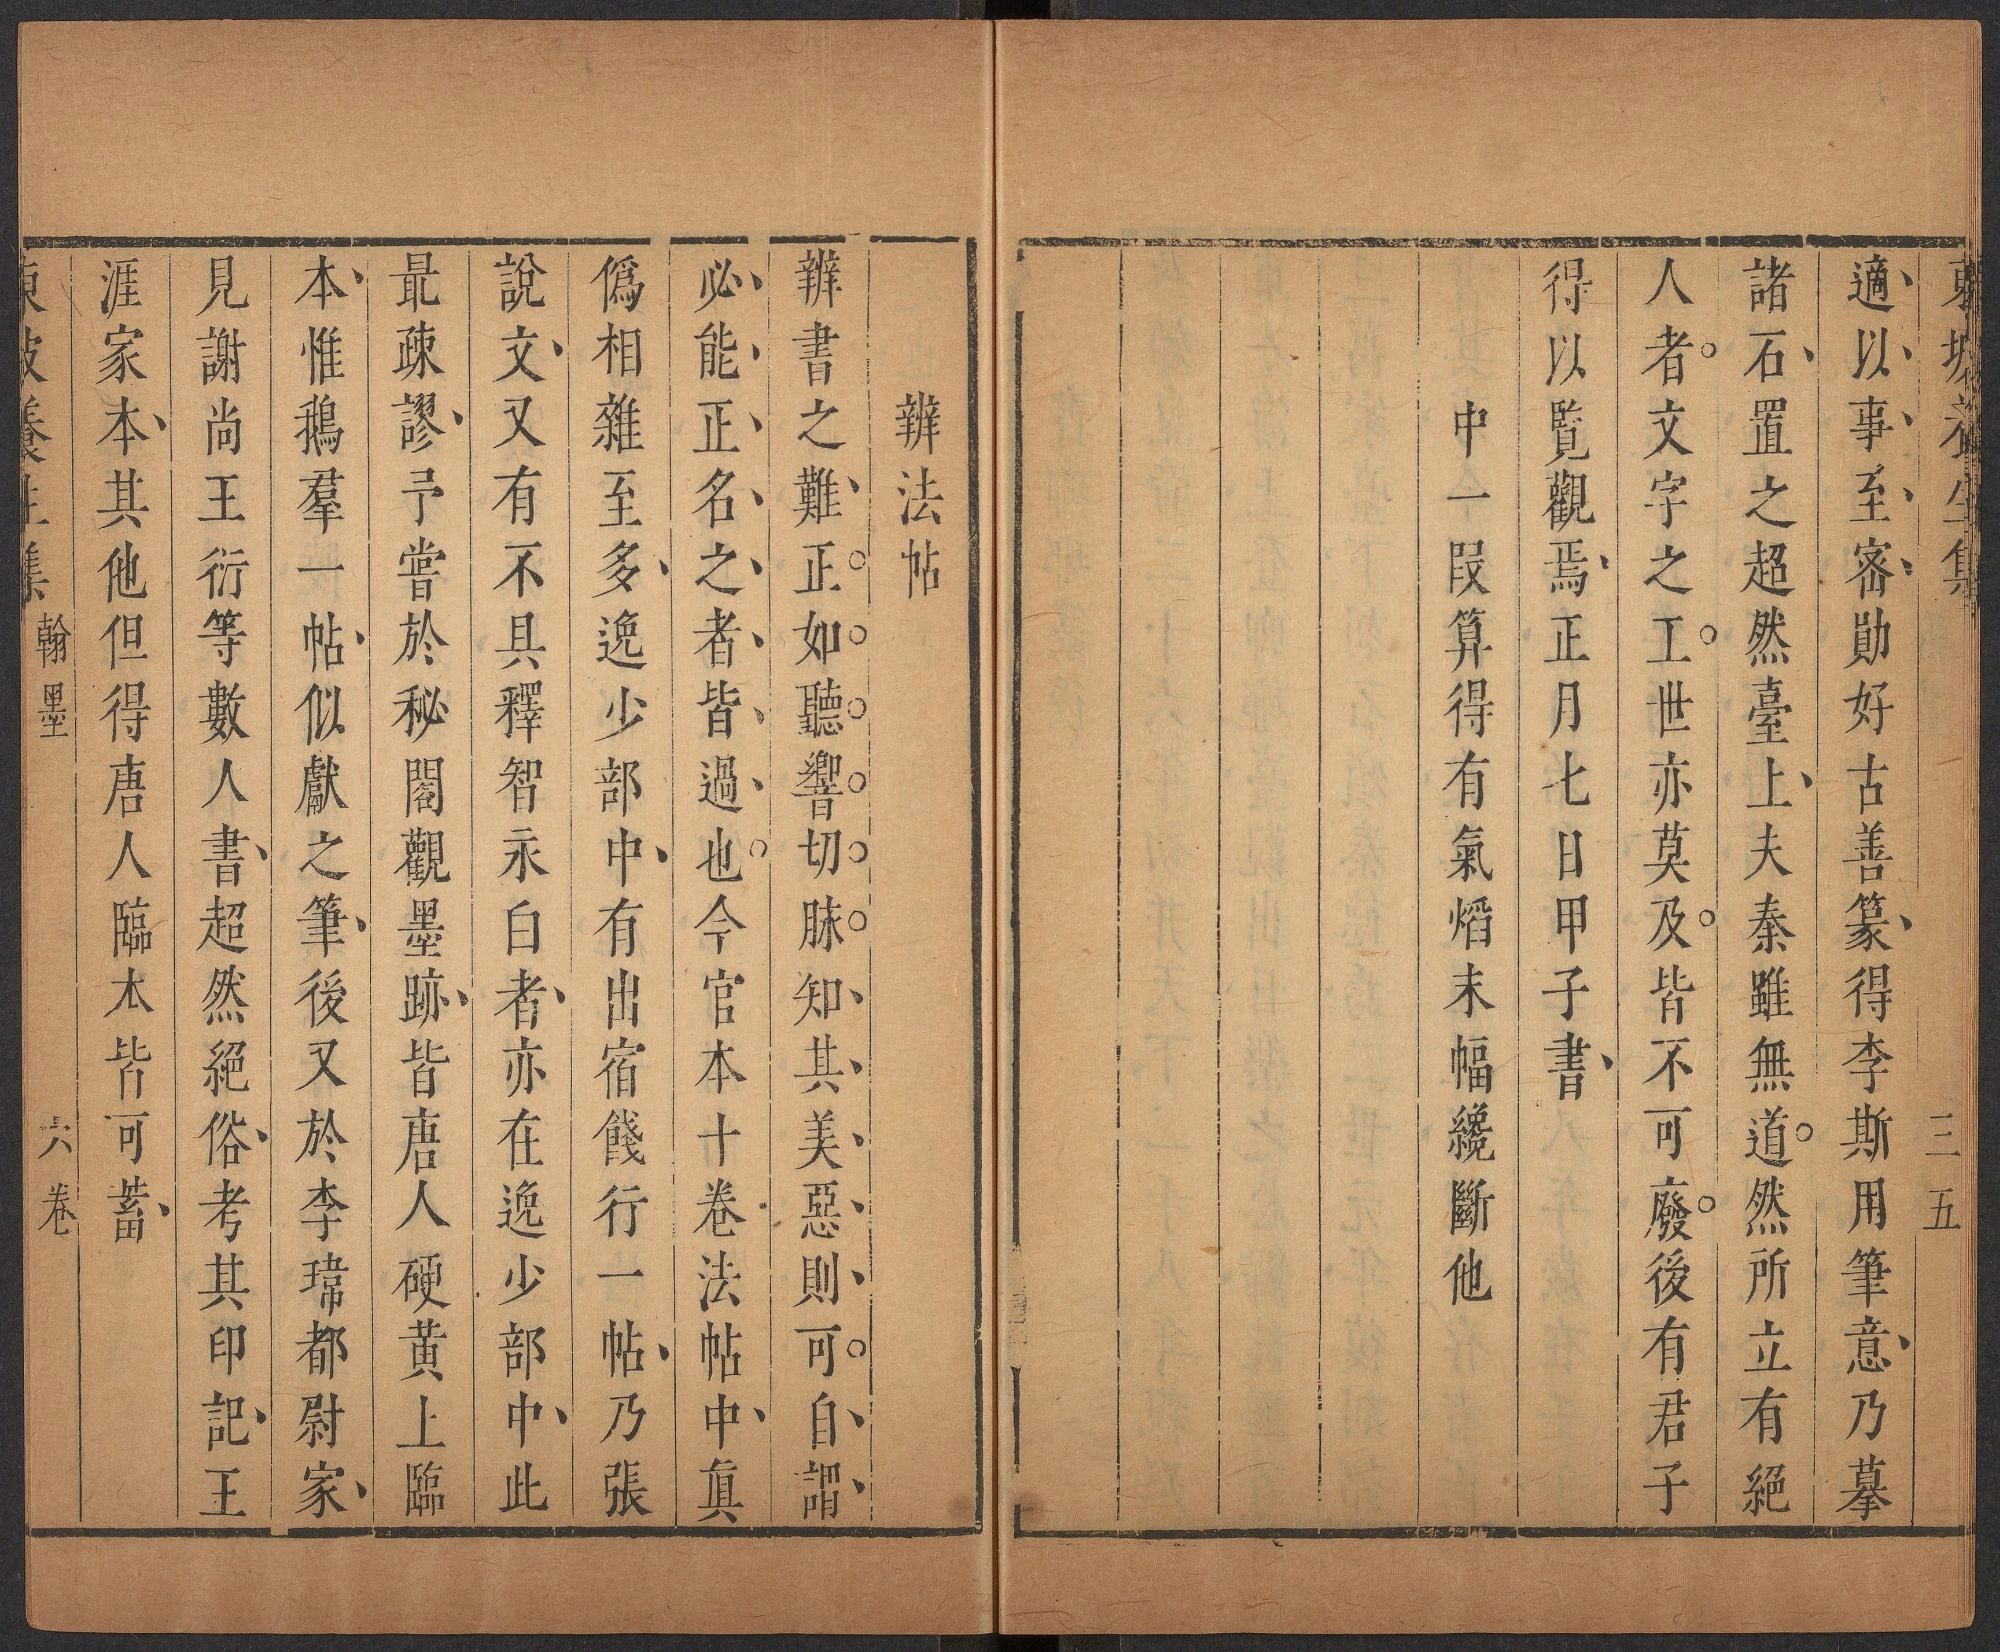 東坡養生集
三五
適以事至密勛好古善篆得李斯用筆意乃摹
諸石置之超然臺上夫秦雖無道然所立有絕
人者文字之工世亦莫及皆不可廢後有君子
得以覧觀焉正月七日甲子書
中一段算得有氣熖末幅纔斷他
辨法帖
辨書之難正如聽響切脉知其美惡則可自謂
必能正名之者皆過也今官本十卷法帖中眞
偽相雜至多逸少部中有出宿餞行一帖乃張
說文又有不具釋智永白者亦在逸少部中此
最疎謬予嘗於秘閣觀墨跡皆唐人硬黄上臨
本惟鵝羣一帖似獻之筆後又於李瑋都尉家
見謝尚王衍等數人書超然絕俗考其印記王
涯家本其他但得唐人臨本皆可蓄
東坡養生集 翰墨 六卷